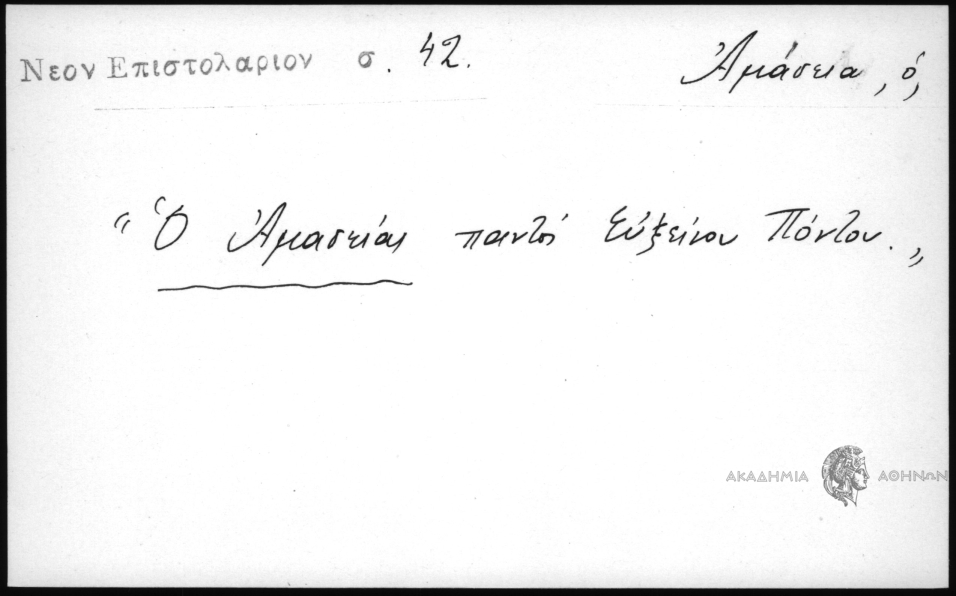 Νεον Επιστολαριον σ. 42. Ἀμάσεια, ὁ,
“Ὁ Ἀμασείας παντὸς Εὐξείνου Πόντου.„
ΑΚΑΔΗΜΙΑ ΑΘΗΝΩΝ